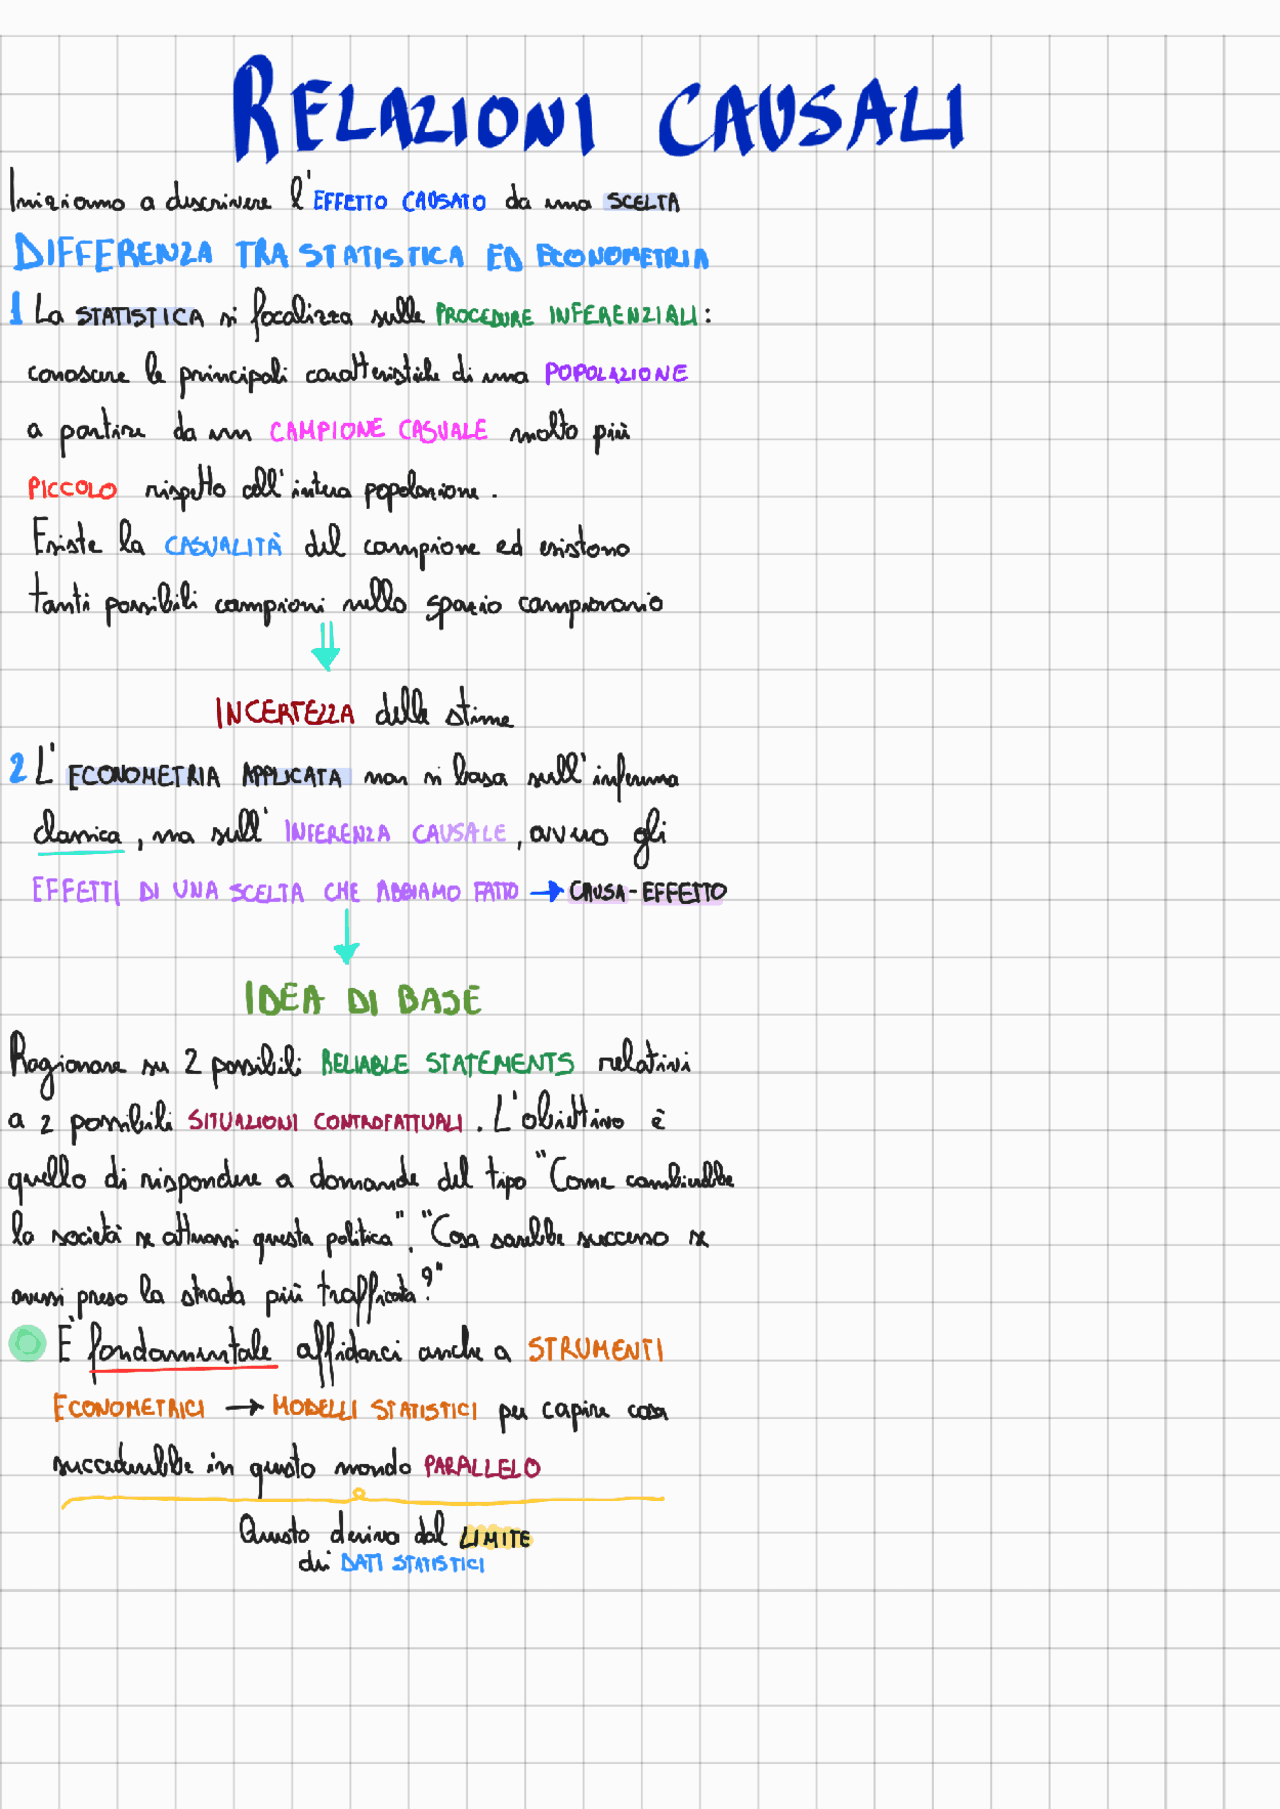 RELAZIONI CAUSALI
Iniziamo a descrivere l'EFFETTO CAUSATO da una SCELTA
DIFFERENZA TRA STATISTICA ED ECONOMETRIA
1 La STATISTICA si focalizza sulle PROCEDURE INFERENZIALI:
conoscere le principali caratteristiche di una POPOLAZIONE
a partire da un CAMPIONE CASUALE molto più
PICCOLO rispetto all'intera popolazione.
Esiste la CASUALITÀ del campione ed esistono
tanti possibili campioni nello spazio campionario
⇓
INCERTEZZA delle stime
2 L'ECONOMETRIA APPLICATA non si basa sull'inferenza
classica, ma sull'INFERENZA CAUSALE, ovvero gli
EFFETTI DI UNA SCELTA CHE ABBIAMO FATTO → CAUSA-EFFETTO
↓
IDEA DI BASE
Ragionare su 2 possibili RELIABLE STATEMENTS relativi
a 2 possibili SITUAZIONI CONTROFATTUALI. L'obiettivo è
quello di rispondere a domande del tipo "Come cambierebbe
la società se attuassi questa politica", "Cosa sarebbe successo se
avessi preso la strada più trafficata?"
È fondamentale affidarci anche a STRUMENTI
ECONOMETRICI → MODELLI STATISTICI per capire cosa
succederebbe in questo mondo PARALLELO
Questo deriva dal LIMITE
dei DATI STATISTICI